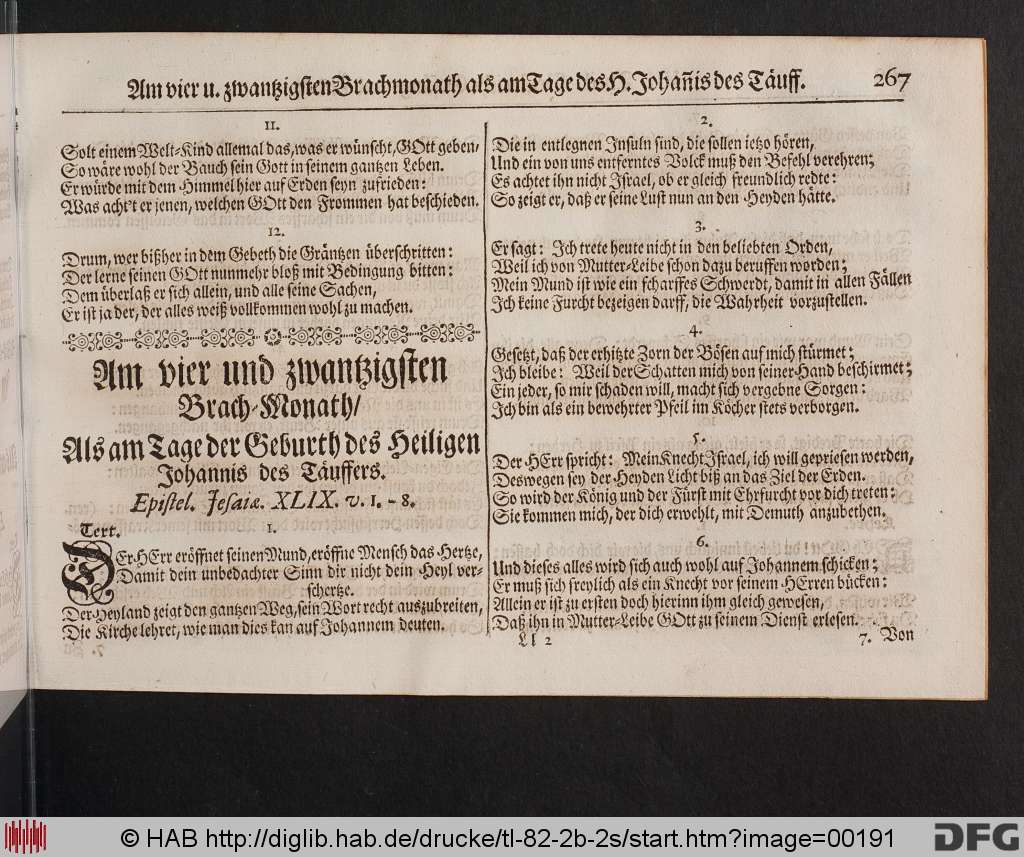 Am vier u. zwantzigsten Brachmonath als am Tage des H. Johañis des Täuff. 267
11.
Solt einem Welt-Kind allemal das, was er wünscht, GOtt geben,
So wäre wohl der Bauch sein Gott in seinem gantzen Leben.
Er würde mit dem Himmel hier auf Erden seyn zufrieden:
Was acht't er jenen, welchen GOtt den Frommen hat beschieden.
12.
Drum, wer bißher in dem Gebeth die Gräntzen überschritten:
Der lerne seinen GOtt nunmehr bloß mit Bedingung bitten:
Dem überlaß er sich allein, und alle seine Sachen,
Er ist ja der, der alles weiß vollkommen wohl zu machen.
Am vier und zwantzigsten
Brach-Monath/
Als am Tage der Geburth des Heiligen
Johannis des Täuffers.
Epistel. Jesaiæ. XLIX. v. 1. - 8.
Text. 1.
DEr HErr eröffnet seinen Mund, eröffne Mensch das Hertze,
Damit dein unbedachter Sinn dir nicht dein Heyl ver-
schertze.
Der Heyland zeigt den gantzen Weg, sein Wort recht auszubreiten,
Die Kirche lehret, wie man dies kan auf Johannem deuten.
2.
Die in entlegnen Insuln sind, die sollen ietzo hören,
Und ein von uns entferntes Volck muß den Befehl verehren;
Es achtet ihn nicht Israel, ob er gleich freundlich redte:
So zeigt er, daß er seine Lust nun an den Heyden hätte.
3.
Er sagt: Ich trete heute nicht in den beliebten Orden,
Weil ich von Mutter-Leibe schon dazu beruffen worden;
Mein Mund ist wie ein scharffes Schwerdt, damit in allen Fällen
Ich keine Furcht bezeigen darff, die Wahrheit vorzustellen.
4.
Gesetzt, daß der erhitzte Zorn der Bösen auf mich stürmet;
Ich bleibe: Weil der Schatten mich von seiner Hand beschirmet;
Ein jeder, so mir schaden will, macht sich vergebne Sorgen:
Ich bin als ein bewehrter Pfeil im Köcher stets verborgen.
5.
Der HErr spricht: Mein Knecht Israel, ich will gepriesen werden,
Deswegen sey der Heyden Licht biß an das Ziel der Erden.
So wird der König und der Fürst mit Ehrfurcht vor dich treten:
Sie kommen mich, der dich erwehlt, mit Demuth anzubethen.
6.
Und dieses alles wird sich auch wohl auf Johannem schicken;
Er muß sich freylich als ein Knecht vor seinem HErren bücken:
Allein er ist zu ersten doch hierinn ihm gleich gewesen,
Daß ihn in Mutter-Leibe GOtt zu seinem Dienst erlesen.
Ll 2 7. Von
© HAB http://diglib.hab.de/drucke/tl-82-2b-2s/start.htm?image=00191
DFG